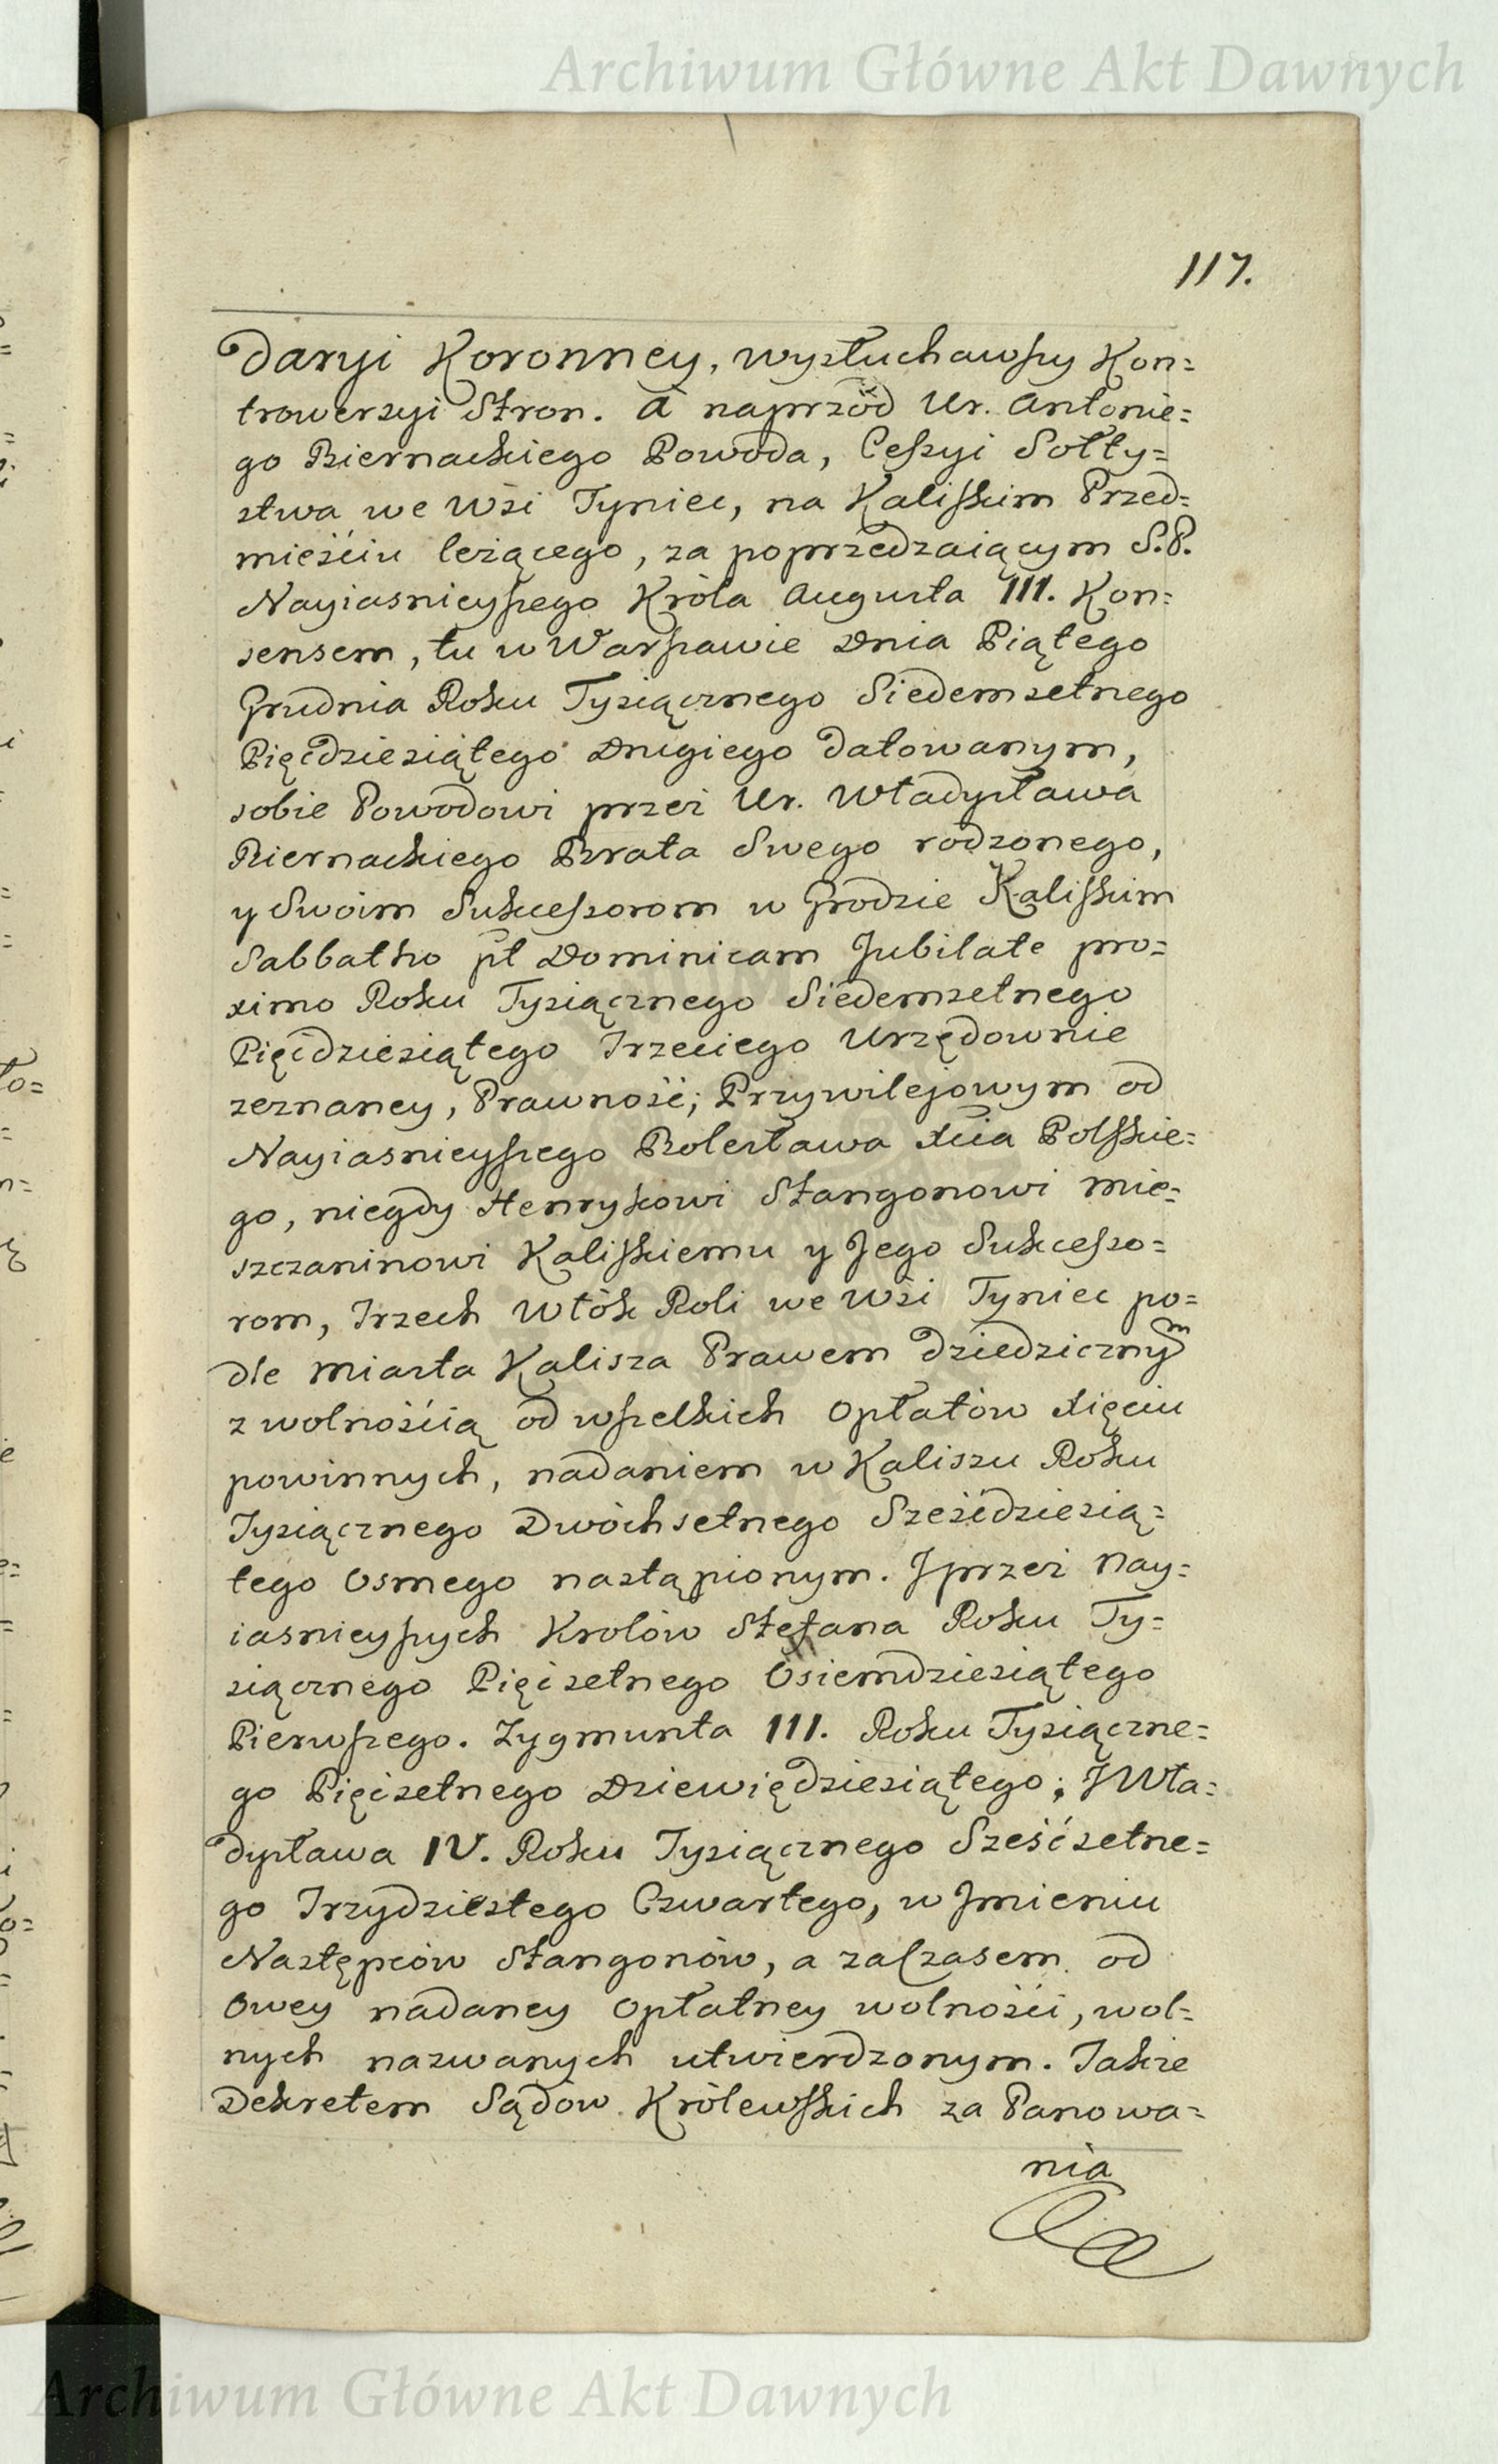 Archiwum Główne Akt Dawnych
117.
daryi Koronney, wysłuchawszy Kon=
trowersyi Stron. A naprzód Ur. Antonie=
go Biernackiego Powoda, Cessyi Sołty=
stwa we Wsi Tyniec, na Kaliskim Przed=
mieściu leżącego, za poprzedzaiącym S.P.
Nayiasnieyszego Króla Augusta III. Kon=
sensem, tu w Warszawie Dnia Piątego
Grudnia Roku Tysiącznego Siedemsetnego
Pięćdziesiątego Drugiego datowanym,
sobie Powodowi przez Ur. Władysława
Biernackiego Brata Swego rodzonego,
y Swoim Sukcessorom w Grodzie Kaliskim
Sabbatho pt Dominicam Jubilate pro=
ximo Roku Tysiącznego Siedemsetnego
Pięćdziesiątego Trzeciego Urzędownie
zeznaney, Prawność; Przywilejowym od
Nayiasnieyszego Bolesława Xcia Polskie=
go, niegdy Henrykowi Stangonowi mie=
szczaninowi Kaliskiemu y Jego Sukcesso=
rom, Trzech Włók Roli we Wsi Tyniec po=
dle Miasta Kalisza Prawem dziedzicznym
z wolnością od wszelkich Opłatów Xięciu
powinnych, nadaniem w Kaliszu Roku
Tysiącznego Dwóchsetnego Sześćdziesią=
tego Osmego nastąpionym. J przez Nay=
iasnieyszych Krolów Stefana Roku Ty=
siącznego Pięćsetnego Osiemdziesiątego
Pierwszego. Zygmunta III. Roku Tysiączne=
go Pięćsetnego Dziewiędziesiątego; J Wła=
dysława IV. Roku Tysiącznego Sześćsetne=
go Trzydziestego Czwartego, w Jmieniu
Następców Stangonów, a za Czasem od
Owey nadaney Opłatney wolności, wol=
nych nazwanych utwierdzonym. Takze
Dekretem Sądów Królewskich za Panowa=
nia
Archiwum Główne Akt Dawnych